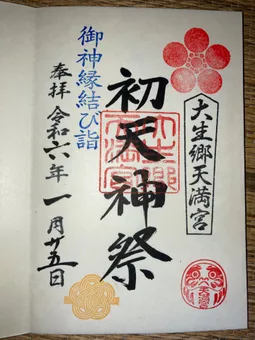 大生郷天満宮
初天神祭
大生郷
天満宮
御神縁結び詣
奉拝 令和六年 一月廿五日